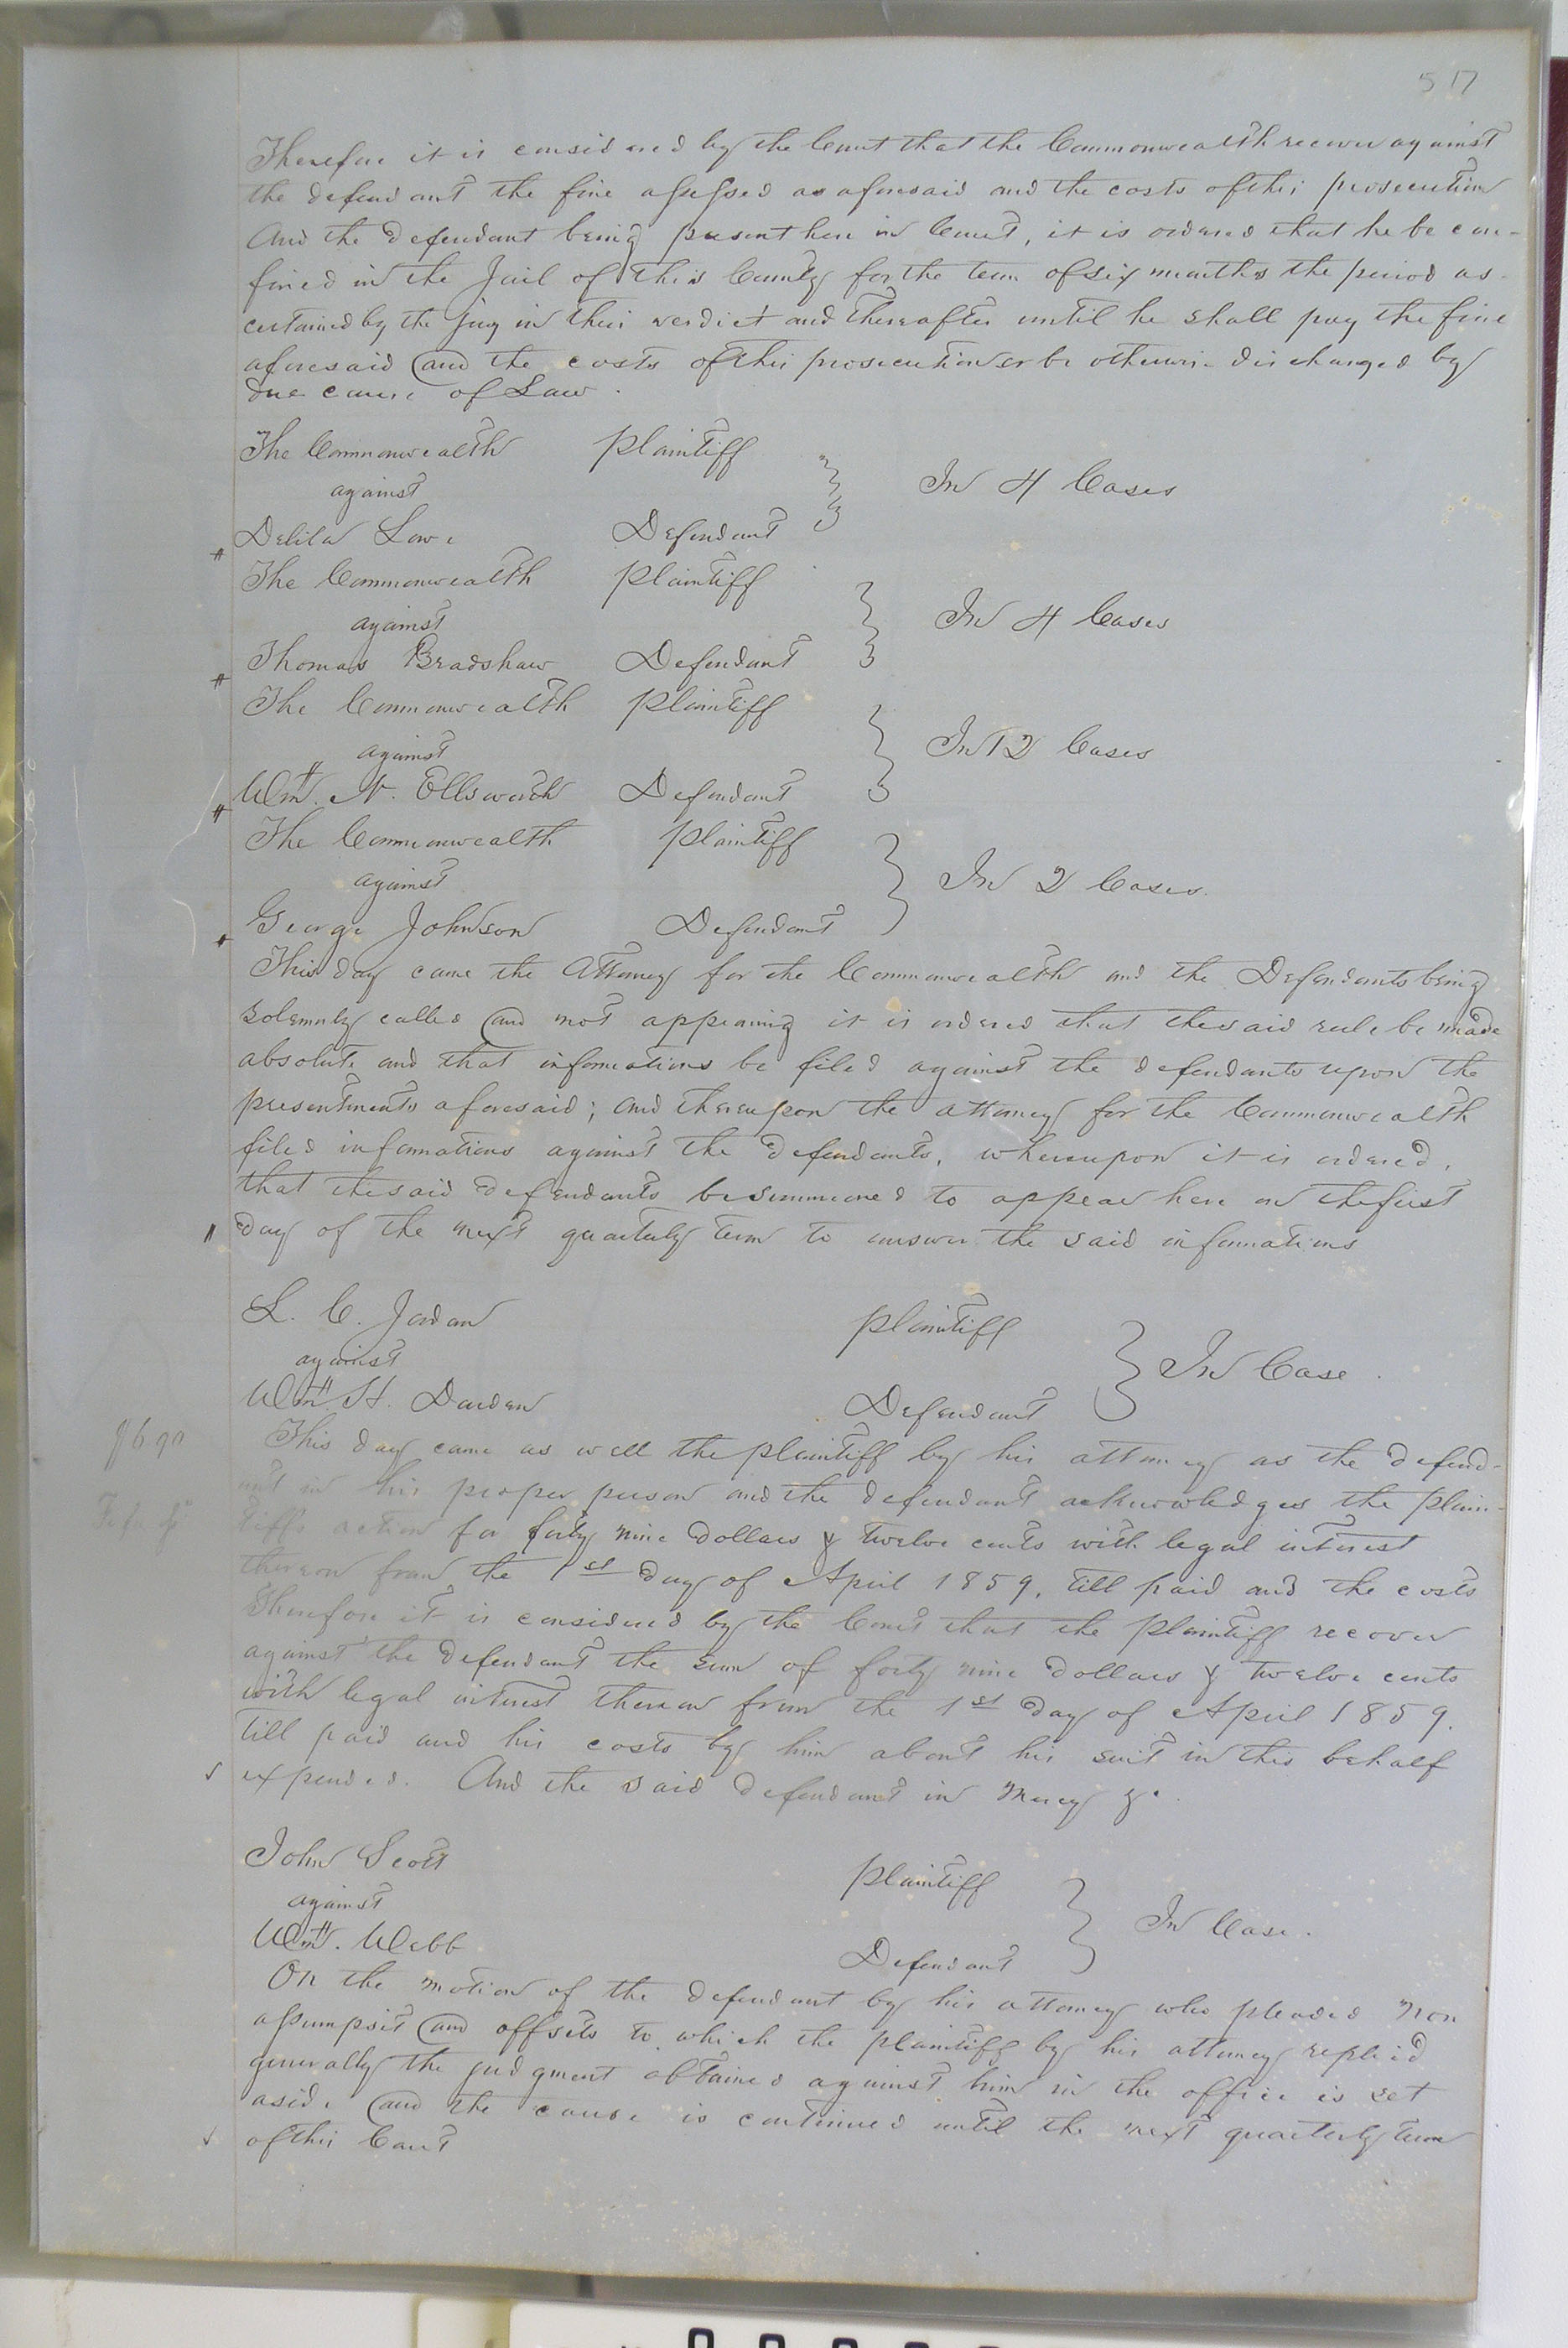 517
Therefore it is considered by the Court that the Commonwealth recover against
the defendant the fine assessed as aforesaid and the costs of this prosecution
And the defendant being present here in Court, it is ordered that he be con-
fined in the Jail of this County for the term of six months the period as-
certained by the jury in their verdict and thereafter until he shall pay the fine
aforesaid and the costs of this prosecution or be otherwise discharged by
due course of Law.
The Commonwealth Plaintiff
against In 4 Cases
Delila Lowe Defendant
The Commonwealth Plaintiff
against In 4 Cases
Thomas Bradshaw Defendant
The Commonwealth Plaintiff
against In 12 Cases
Wm. N. Ellsworth Defendant
The Commonwealth Plaintiff
against In 2 Cases.
George Johnson Defendant
This day came the Attorney for the Commonwealth and the Defendants being
solemnly called and not appearing it is ordered that the said rule be made
absolute and that informations be filed against the defendants upon the
presentments aforesaid; and thereupon the attorney for the Commonwealth
filed informations against the defendants, whereupon it is ordered,
that the said defendants be summoned to appear here on the first
day of the next quarterly term to answer the said informations
L. C. Jordan Plaintiff
against In Case.
Wm. H. Darden Defendant
This day came as well the plaintiff by his attorney as the defend-
ant in his proper person and the defendant acknowledges the plain-
tiffs action for forty nine dollars & twelve cents with legal interest
thereon from the 1st day of April 1859, till paid and the costs
Therefore it is considered by the Court that the Plaintiff recover
against the defendant the sum of forty nine dollars & twelve cents
with legal interest thereon from the 1st day of April 1859.
till paid and his costs by him about his suit in this behalf
expended. And the said defendant in Mercy &c.
John Scott Plaintiff
against In Case.
Wm. Webb Defendant
On the motion of the defendant by his attorney who pleaded non
assumpsit and offsets to which the plaintiff by his attorney replied
generally the judgment obtained against him in the office is set
aside and the cause is continued until the next quarterly term
of this Court